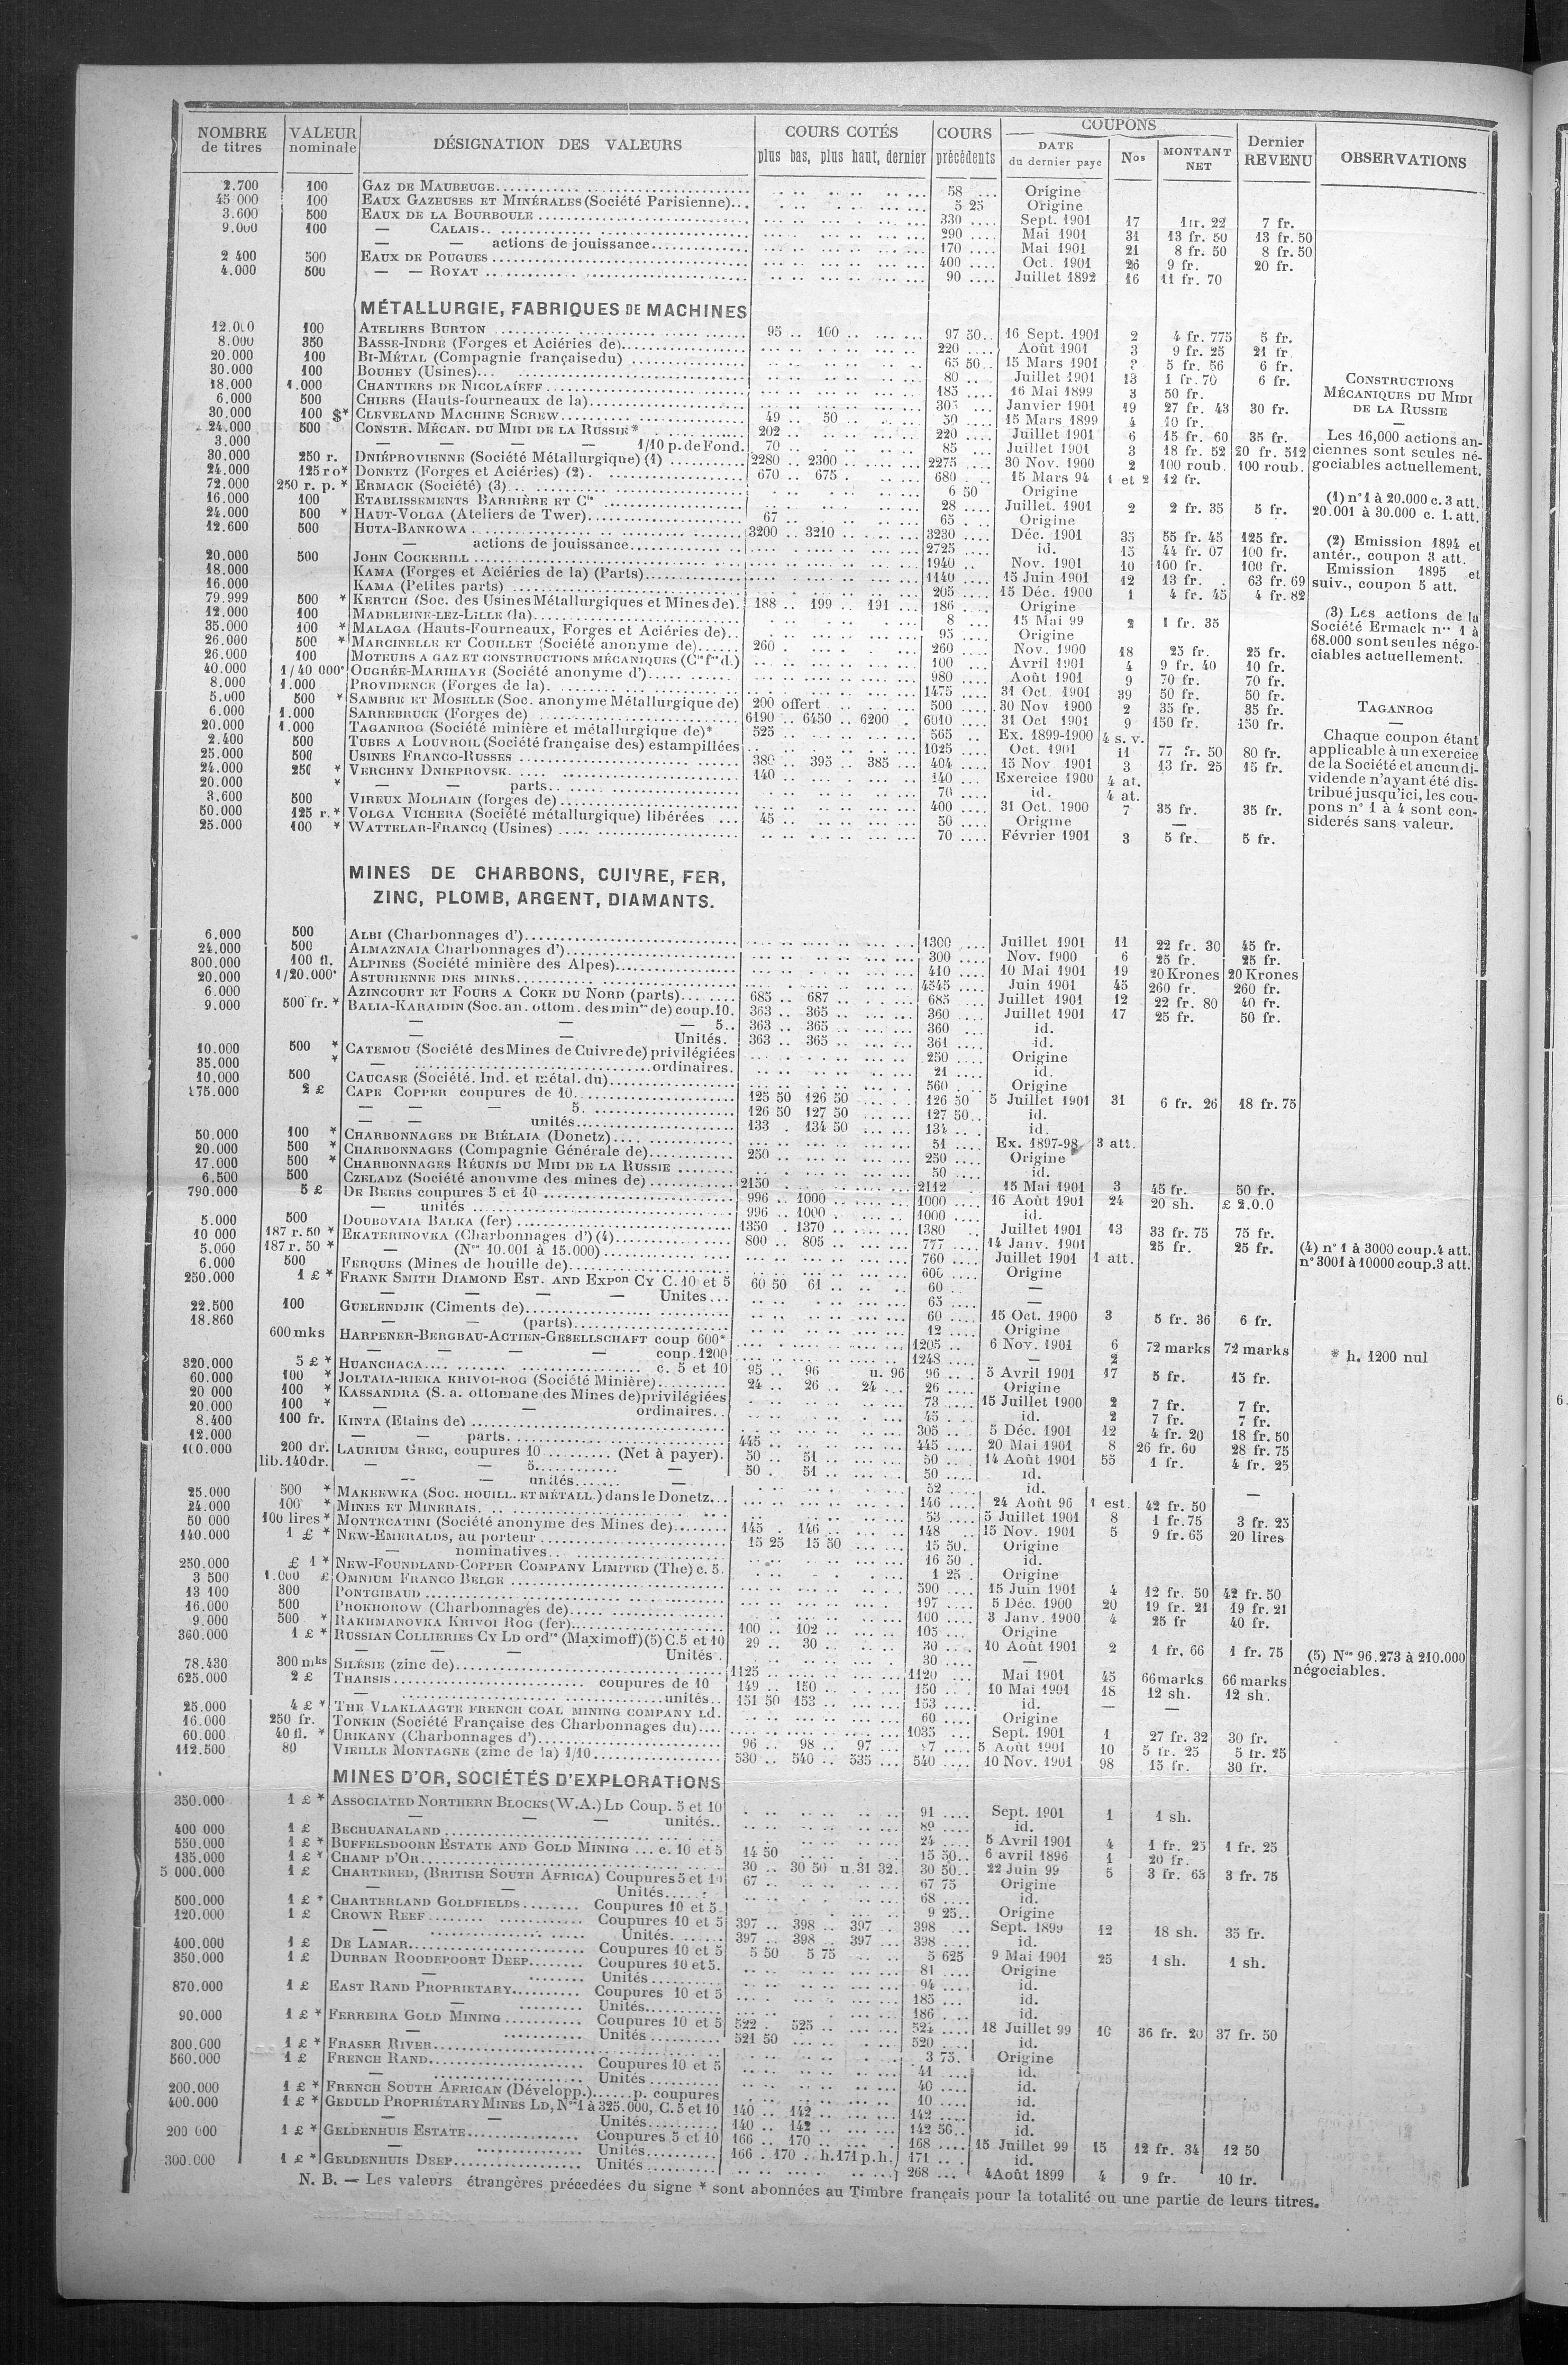 NOMBRE de titres | VALEUR nominale | DÉSIGNATION DES VALEURS | COURS COTÉS plus bas, plus haut, dernier | COURS précédents | COUPONS DATE du dernier paye | Nos | MONTANT NET | Dernier REVENU | OBSERVATIONS
2.700 100 GAZ DE MAUBEUGE 58 Origine
45 000 100 EAUX GAZEUSES ET MINÉRALES (Société Parisienne) 5 25 Origine
3.600 500 EAUX DE LA BOURBOULE 330 Sept. 1901 17 1fr. 22 7 fr.
9.000 100 — CALAIS 290 Mai 1901 31 13 fr. 50 13 fr. 50
— — actions de jouissance 170 Mai 1901 21 8 fr. 50 8 fr. 50
2 400 500 EAUX DE POUGUES 400 Oct. 1901 26 9 fr. 20 fr.
4.000 500 — — ROYAT 90 Juillet 1892 16 11 fr. 70
MÉTALLURGIE, FABRIQUES DE MACHINES
12.000 100 ATELIERS BURTON 95 100 97 50 16 Sept. 1901 2 4 fr. 775 5 fr.
8.000 350 BASSE-INDRE (Forges et Aciéries de) 220 Août 1901 3 9 fr. 25 21 fr
20.000 100 BI-MÉTAL (Compagnie française du) 65 50 15 Mars 1901 5 fr. 56 6 fr.
30.000 100 BOUHEY (Usines) 80 Juillet 1901 13 1 fr. 70 6 fr.
18.000 1.000 CHANTIERS DE NICOLAÏEFF 185 16 Mai 1899 3 50 fr.
6.000 500 CHIERS (Hauts-fourneaux de la) Janvier 1901 19 27 fr. 43 30 fr.
30.000 100 $* CLEVELAND MACHINE SCREW 49 50 50 15 Mars 1899 4 10 fr.
24.000 500 CONSTR. MÉCAN. DU MIDI DE LA RUSSIE* 202 220 Juillet 1901 6 15 fr. 60 35 fr.
3.000 — — — — 1/10 p. de Fond. 70 85 Juillet 1901 3 18 fr. 52 20 fr. 512
30.000 250 r. DNIÉPROVIENNE (Société Métallurgique) (1) 2280 2300 2275 30 Nov. 1900 2 100 roub. 100 roub.
24.000 125 ro* DONETZ (Forges et Aciéries) (2) 670 675 680 15 Mars 94 1 et 2 12 fr.
72.000 250 r. p. * ERMACK (Société) (3) 6 50 Origine
16.000 100 ETABLISSEMENTS BARRIÈRE ET Cie 28 Juillet. 1901 2 2 fr. 35 5 fr.
24.000 500 * HAUT-VOLGA (Ateliers de Twer) 67 65 Origine
12.600 500 HUTA-BANKOWA 3200 3210 3230 Déc. 1901 35 55 fr. 45 125 fr.
— actions de jouissance 2725 id. 15 44 fr. 07 100 fr.
20.000 500 JOHN COCKERILL 1940 Nov. 1901 10 100 fr. 100 fr.
18.000 KAMA (Forges et Aciéries de la) (Parts) 1140 15 Juin 1901 12 13 fr. 63 fr. 69
16.000 KAMA (Petites parts) 205 15 Déc. 1900 1 4 fr. 45 4 fr. 82
79.999 500 * KERTCH (Soc. des Usines Métallurgiques et Mines de) 188 199 191 186 Origine
12.000 100 MADELEINE-LEZ-LILLE (la) 8 15 Mai 99 2 1 fr. 35
35.000 100 * MALAGA (Hauts-Fourneaux, Forges et Aciéries de) 95 Origine
26.000 500 * MARCINELLE ET COUILLET (Société anonyme de) 260 260 Nov. 1900 18 25 fr. 25 fr.
26.000 100 MOTEURS A GAZ ET CONSTRUCTIONS MÉCANIQUES (Cie fse d.) 100 Avril 1901 4 9 fr. 40 10 fr.
40.000 1/40 000e OUGRÉE-MARIHAYE (Société anonyme d') 980 Août 1901 9 70 fr. 70 fr.
8.000 1.000 PROVIDENCE (Forges de la) 1475 31 Oct. 1901 39 50 fr. 50 fr.
5.000 500 * SAMBRE ET MOSELLE (Soc. anonyme Métallurgique de) 200 offert 500 30 Nov 1900 2 35 fr. 35 fr.
6.000 1.000 SARREBRUCK (Forges de) 6190 6450 6200 6010 31 Oct 1901 9 150 fr. 150 fr.
20.000 1.000 TAGANROG (Société minière et métallurgique de)* 525 565 Ex. 1899-1900 4 s. v.
2.400 500 TUBES A LOUVROIL (Société française des) estampillées 1025 Oct. 1901 11 77 fr. 50 80 fr.
25.000 500 USINES FRANCO-RUSSES 380 395 385 404 15 Nov 1901 3 13 fr. 25 15 fr.
24.000 250 * VERCHNY DNIEPROVSK 140 140 Exercice 1900 4 at.
20.000 * — — parts 70 id. 4 at.
3.600 500 VIREUX MOLHAIN (forges de) 400 31 Oct. 1900 7 35 fr. 35 fr.
50.000 125 r. * VOLGA VICHERA (Société métallurgique) libérées 45 50 Origine —
25.000 100 * WATTELAR-FRANCQ (Usines) 70 Février 1901 3 5 fr. 5 fr.
CONSTRUCTIONS
MÉCANIQUES DU MIDI
DE LA RUSSIE
—
Les 16,000 actions an-
ciennes sont seules né-
gociables actuellement.
(1) n° 1 à 20.000 c. 3 att.
20.001 à 30.000 c. 1. att.
(2) Emission 1894 et
antér., coupon 3 att.
Emission 1895 et
suiv., coupon 5 att.
(3) Les actions de la
Société Ermack nos 1 à
68.000 sont seules négo-
ciables actuellement.
TAGANROG
—
Chaque coupon étant
applicable à un exercice
de la Société et aucun di-
vidende n'ayant été dis-
tribué jusqu'ici, les cou-
pons n° 1 à 4 sont con-
siderés sans valeur.
MINES DE CHARBONS, CUIVRE, FER,
ZINC, PLOMB, ARGENT, DIAMANTS.
6.000 500 ALBI (Charbonnages d') 1300 Juillet 1901 11 22 fr. 30 45 fr.
24.000 500 ALMAZNAIA Charbonnages d') 300 Nov. 1900 6 25 fr. 25 fr.
300.000 100 fl. ALPINES (Société minière des Alpes) 410 10 Mai 1901 19 20 Krones 20 Krones
20.000 1/20.000e ASTURIENNE DES MINES 4545 Juin 1901 45 260 fr. 260 fr.
6.000 AZINCOURT ET FOURS A COKE DU NORD (parts) 685 687 685 Juillet 1901 12 22 fr. 80 40 fr.
9.000 500 fr. * BALIA-KARAIDIN (Soc. an. ottom. des mines de) coup. 10. 363 365 360 Juillet 1901 17 25 fr. 50 fr.
— — — 5 363 365 360 id.
— — Unités. 363 365 361 id.
10.000 500 * CATEMOU (Société des Mines de Cuivre de) privilégiées 250 Origine
35.000 * — ordinaires. 21 id.
10.000 500 CAUCASE (Société. Ind. et métal. du) 560 Origine
175.000 2 £ CAPE COPPER coupures de 10 125 50 126 50 126 50 5 Juillet 1901 31 6 fr. 26 18 fr. 75
— — — 5. 126 50 127 50 127 50 id.
— — unités 133 134 50 134 id.
50.000 100 * CHARBONNAGES DE BIÉLAIA (Donetz) 51 Ex. 1897-98 3 att.
20.000 500 * CHARBONNAGES (Compagnie Générale de) 250 250 Origine
17.000 500 * CHARBONNAGES RÉUNIS DU MIDI DE LA RUSSIE 50 id.
6.500 500 CZELADZ (Société anonyme des mines de) 2150 2112 15 Mai 1901 3 45 fr. 50 fr.
790.000 5 £ DE BEERS coupures 5 et 10 996 1000 1000 16 Août 1901 24 20 sh. £ 2.0.0
— unités 996 1000 1000 id.
5.000 500 DOUBOVAIA BALKA (fer) 1350 1370 1380 Juillet 1901 13 33 fr. 75 75 fr.
10 000 187 r. 50 * EKATERINOVKA (Charbonnages d') (4) 800 805 777 14 Janv. 1901 25 fr. 25 fr. (4) n° 1 à 3000 coup. 4 att.
5.000 187 r. 50 * — (Nos 10.001 à 15.000) 760 Juillet 1901 1 att. n° 3001 à 10000 coup. 3 att.
6.000 500 FERQUES (Mines de houille de) 600 Origine
250.000 1 £ * FRANK SMITH DIAMOND EST. AND EXPon CY C. 10 et 5 60 50 61 60 —
— — — — Unites 65 —
22.500 100 GUELENDJIK (Ciments de) 60 15 Oct. 1900 3 5 fr. 36 6 fr.
18.860 — — (parts) 12 Origine
600 mks HARPENER-BERGBAU-ACTIEN-GESELLSCHAFT coup 600* 1205 6 Nov. 1901 6 72 marks 72 marks
— — — — coup. 1200 1248 — 2 * h. 1200 nul
320.000 5 £ * HUANCHACA c. 5 et 10 95 96 u. 96 96 5 Avril 1901 17 5 fr. 15 fr.
60.000 100 * JOLTAIA-RIEKA KRIVOI-ROG (Société Minière) 24 26 24 26 Origine
20 000 100 * KASSANDRA (S. a. ottomane des Mines de) privilégiées 73 15 Juillet 1900 2 7 fr. 7 fr.
20.000 100 * — — ordinaires 45 id. 2 7 fr. 7 fr.
8.400 100 fr. KINTA (Etains de) 305 5 Déc. 1901 12 4 fr. 20 18 fr. 50
12.000 — — parts 445 445 20 Mai 1901 8 26 fr. 60 28 fr. 75
100.000 200 dr. LAURIUM GREC, coupures 10 (Net à payer). 50 51 50 14 Août 1901 55 1 fr. 4 fr. 25
lib. 140 dr. — — 5 — 50 51 50 id.
— — unités — 52 id. —
25.000 500 * MAKEEWKA (SOC. HOUILL. ET MÉTALL.) dans le Donetz 146 24 Août 96 1 est. 42 fr. 50
24.000 100 * MINES ET MINERAIS 53 5 Juillet 1901 8 1 fr. 75 3 fr. 25
50 000 100 lires * MONTECATINI (Société anonyme des Mines de) 145 146 148 15 Nov. 1901 5 9 fr. 65 20 lires
140.000 1 £ * NEW-EMERALDS, au porteur 15 25 15 50 15 50 Origine
— nominatives 16 50 id.
250.000 £ 1 * NEW-FOUNDLAND-COPPER COMPANY LIMITED (The) c. 5 1 25 Origine
3 500 1.000 £ OMNIUM FRANCO BELGE 590 15 Juin 1901 4 12 fr. 50 42 fr. 50
13 100 300 PONTGIBAUD 197 5 Déc. 1900 20 19 fr. 21 19 fr. 21
16.000 500 PROKHOROW (Charbonnages de) 100 3 Janv. 1900 4 25 fr 40 fr.
9.000 500 * RAKHMANOVKA KRIVOI ROG (fer) 100 102 105 Origine
360.000 1 £ * RUSSIAN COLLIERIES CY LD ordres (Maximoff) (5) C. 5 et 10 29 30 30 10 Août 1901 2 1 fr. 66 1 fr. 75 (5) Nos 96.273 à 210.000
— — — Unités 30 — négociables.
78.430 300 mks SILÉSIE (zinc de) 1125 1120 Mai 1901 45 66 marks 66 marks
625.000 2 £ THARSIS coupures de 10 149 150 150 10 Mai 1901 18 12 sh. 12 sh.
— unités 151 50 153 153 id. — —
25.000 4 £ * THE VLAKLAAGTE FRENCH COAL MINING COMPANY LD. 60 Origine
16.000 250 fr. TONKIN (Société Française des Charbonnages du) 1035 Sept. 1901 1 27 fr. 32 30 fr.
60.000 40 fl. * URIKANY (Charbonnages d') 96 98 97 5 Août 1901 10 5 fr. 25 5 fr. 25
112.500 80 VIEILLE MONTAGNE (zinc de la) 1/10 530 540 535 540 10 Nov. 1901 98 15 fr. 30 fr.
MINES D'OR, SOCIÉTÉS D'EXPLORATIONS
350.000 1 £ * ASSOCIATED NORTHERN BLOCKS (W.A.) LD Coup. 5 et 10 91 Sept. 1901 1 1 sh.
— — — unités 89 id.
400 000 1 £ BECHUANALAND 24 5 Avril 1901 4 1 fr. 25 1 fr. 25
550.000 1 £ * BUFFELSDOORN ESTATE AND GOLD MINING c. 10 et 5 14 50 15 50 6 avril 1896 1 20 fr.
135.000 1 £ * CHAMP D'OR 30 30 50 u. 31 32 30 50 22 Juin 99 5 3 fr. 63 3 fr. 75
5 000.000 1 £ CHARTERED, (BRITISH SOUTH AFRICA) Coupures 5 et 10 67 67 75 Origine
— — Unités 68 id.
500.000 1 £ * CHARTERLAND GOLDFIELDS Coupures 10 et 5 9 25 Origine
120.000 1 £ CROWN REEF Coupures 10 et 5 397 398 397 398 Sept. 1899 12 18 sh. 35 fr.
— Unités 397 398 397 398 id.
400.000 1 £ DE LAMAR Coupures 10 et 5 5 50 5 75 5 625 9 Mai 1901 25 1 sh. 1 sh.
350.000 1 £ DURBAN ROODEPOORT DEEP Coupures 10 et 5. 81 Origine
— Unités 94 id.
870.000 1 £ EAST RAND PROPRIETARY Coupures 10 et 5 185 id.
— Unités 186 id.
90.000 1 £ * FERREIRA GOLD MINING Coupures 10 et 5 522 525 524 18 Juillet 99 10 36 fr. 20 37 fr. 50
— Unités 521 50 520 id.
300.000 1 £ * FRASER RIVER 3 75 Origine
560.000 1 £ FRENCH RAND Coupures 10 et 5 41 id.
— Unités 40 id.
200.000 1 £ * FRENCH SOUTH AFRICAN (Développ.) p. coupures 10 id.
400.000 1 £ * GEDULD PROPRIÉTARY MINES LD, Nos 1 à 325.000, C. 5 et 10 140 142 142 id.
— — Unités 140 142 142 50 id.
200 000 1 £ * GELDENHUIS ESTATE Coupures 5 et 10 166 170 168 15 Juillet 99 15 12 fr. 34 12 50
— Unités 166 170 h. 171 p. h. 171 id.
300.000 1 £ * GELDENHUIS DEEP Unités 268 4 Août 1899 4 9 fr. 10 fr.
N. B. — Les valeurs étrangères précedées du signe * sont abonnées au Timbre français pour la totalité ou une partie de leurs titres.